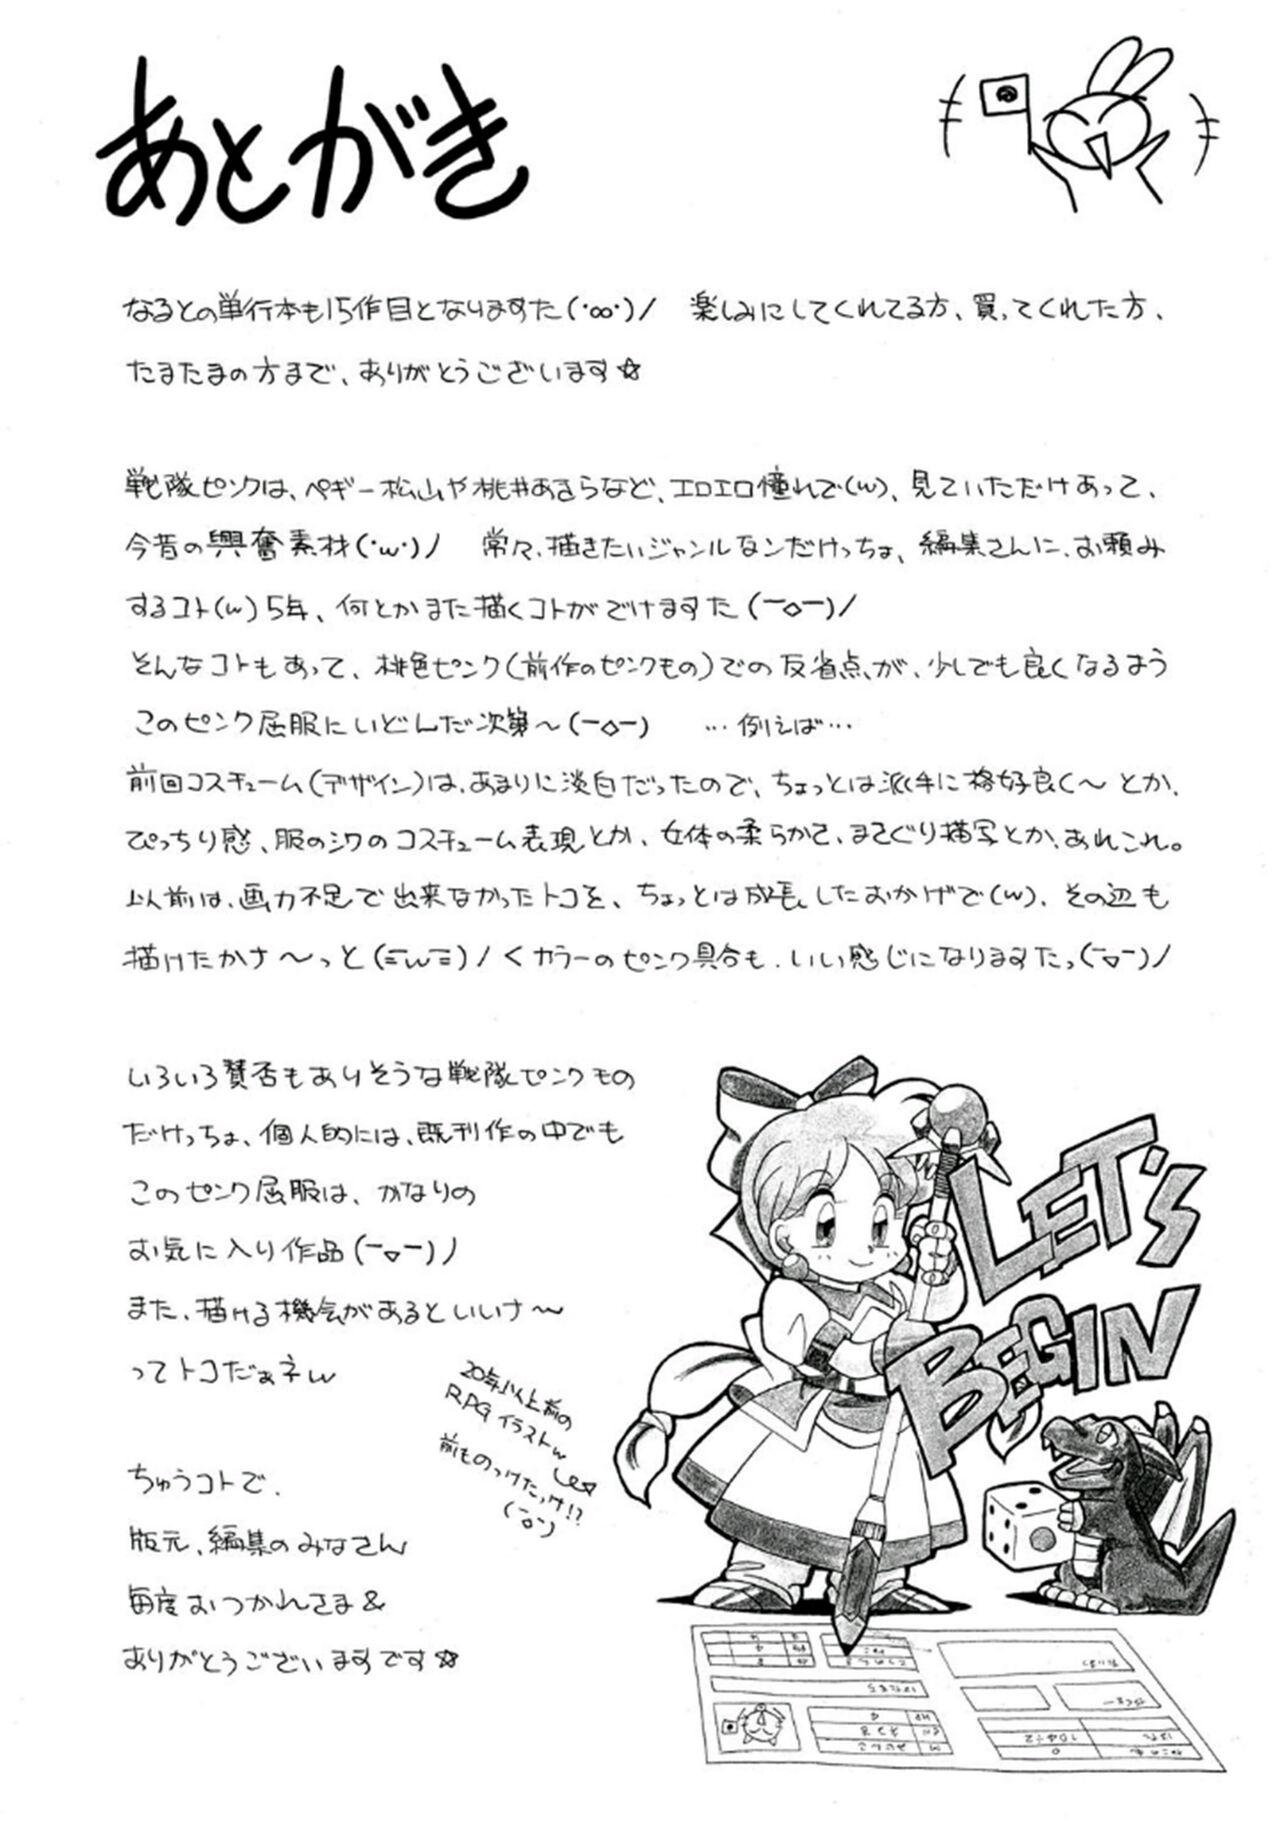 あとがき
なるとの単行本も15作目となりますた(・∞・)/ 楽しみにしてくれてる方、買ってくれた方、
たまたまの方まで、ありがとうございます☆
戦隊ピンクは、ペギー松山や桃井あきらなど、エロエロ憧れで(w)、見ていただけあって、
今昔の興奮素材(・w・)/ 常々、描きたいジャンルなンだけっちょ、編集さんに、お頼み
するコト(w)5年、何とかまた描くコトがでけますた(ー◇ー)/
そんなコトもあって、桃色ピンク(前作のピンクもの)での反省点が、少しでも良くなるよう
このピンク屈服にいどんだ次第〜(ー◇ー) …例えば…
前回コスチューム(デザイン)は、あまりに淡白だったので、ちょっとは派手に格好良く〜とか、
ぴっちり感、服のシワのコスチューム表現とか、女体の柔らかさ、まさぐり描写とか、あれこれ。
以前は、画力不足で出来なかったトコを、ちょっとは成長したおかげで(w)、その辺も
描けたかナ〜っと(ΞwΞ)/くカラーのピンク具合も、いい感じになりますたっ(ー▽ー)/
いろいろ賛否もありそうな戦隊ピンクもの
だけっちょ、個人的には、既刊作の中でも
このピンク屈服は、かなりの
お気に入り作品(ー▽ー)/
また、描ける機会があるといいナ〜
ってトコだぁネw
20年以上前の
RPGイラストw
前ものっけたっけ!?
(ーo゙ー)
LET'S
BEGIN
ちゅうコトで、
版元、編集のみなさん
毎度おつかれさま&
ありがとうございますです☆